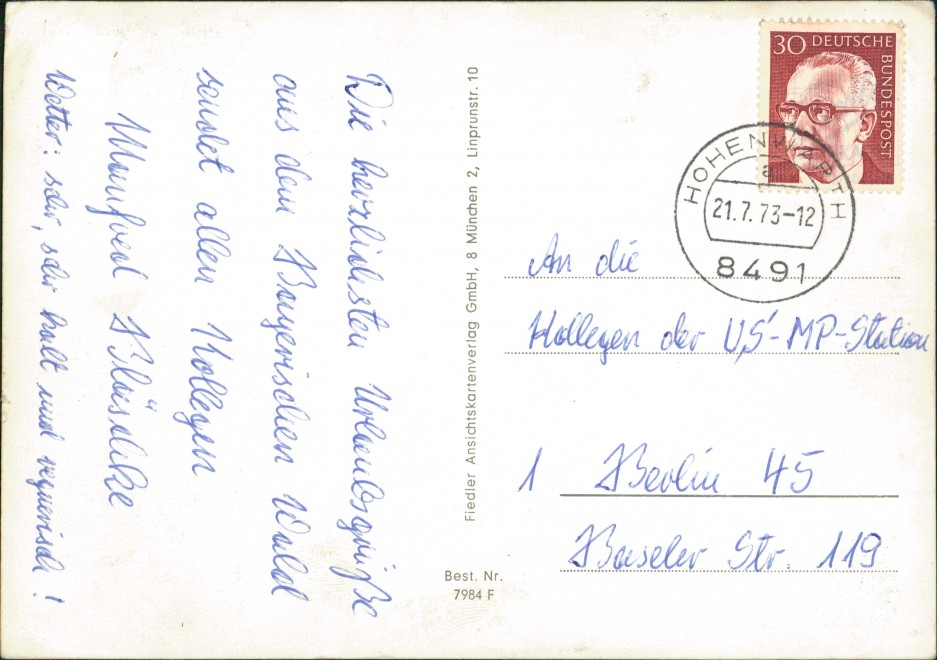 Die herzlichsten Urlaubsgrüße
aus dem Bayerischen Wald
sendet allen Kollegen
Manfred
Wetter: sehr, sehr kalt und regnerisch!
Fiedler Ansichtskartenverlag GmbH, 8 München 2, Linprunstr. 10
Best. Nr.
7984 F
30 DEUTSCHE
BUNDESPOST
HOHENWARTH
a
21.7.73-12
8491
An die
Kollegen der US-MP-Station
1 Berlin 45
Baseler Str. 119